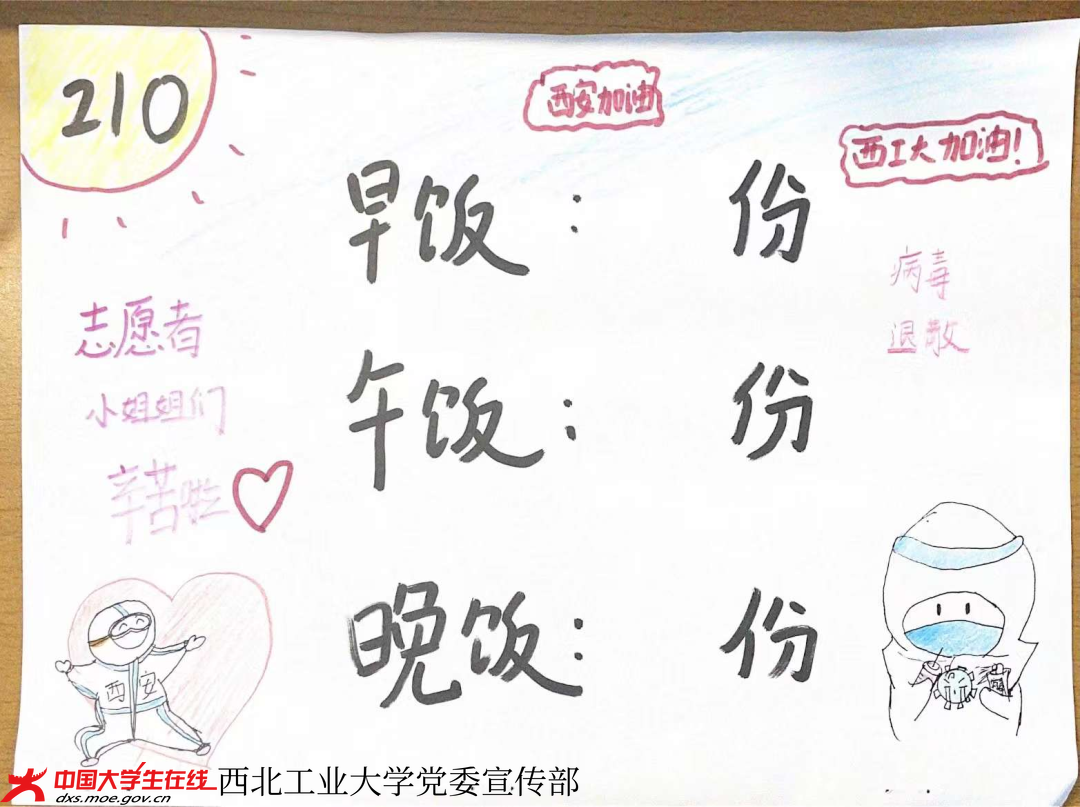 210
西安加油
西工大加油!
早饭: 份
病毒
退散
志愿者
小姐姐们
辛苦啦
午饭: 份
晚饭: 份
西安
中国大学生在线
dxs.moe.gov.cn
西北工业大学党委宣传部